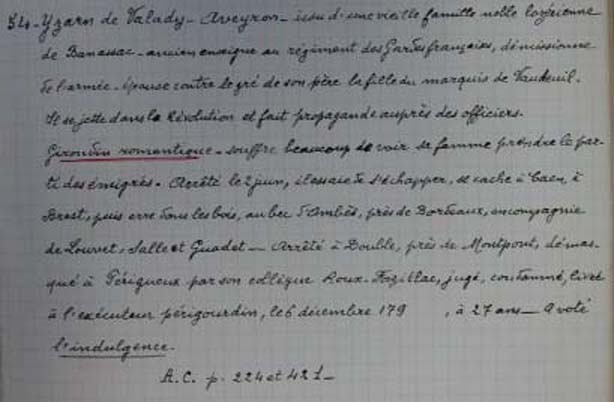 54- Yzarn de Valady - Aveyron - issu d'une vieille famille noble lozérienne
de Banassac - ancien enseigne au régiment des Gardes françaises, démissionne
de l'armée - épouse contre le gré de son père la fille du marquis de Vaudreuil.
Il se jette dans la Révolution et fait propagande auprès des officiers.
Girondin romantique - souffre beaucoup de voir sa femme prendre le par-
ti des émigrés - Arrêté le 2 juin, il essaie de s'échapper, se cache à Caen, à
Brest, puis erre dans les bois, au bec d'Ambès, près de Bordeaux, en compagnie
de Louvet, Salle et Guadet - Arrêté à Double, près de Montpont, démas-
qué à Périgueux par son collègue Roux-Fazillac, jugé, condamné, livré
à l'exécuteur périgourdin, le 6 décembre 179 , à 27 ans - A voté
l'indulgence.
A.C. p. 224 et 421-